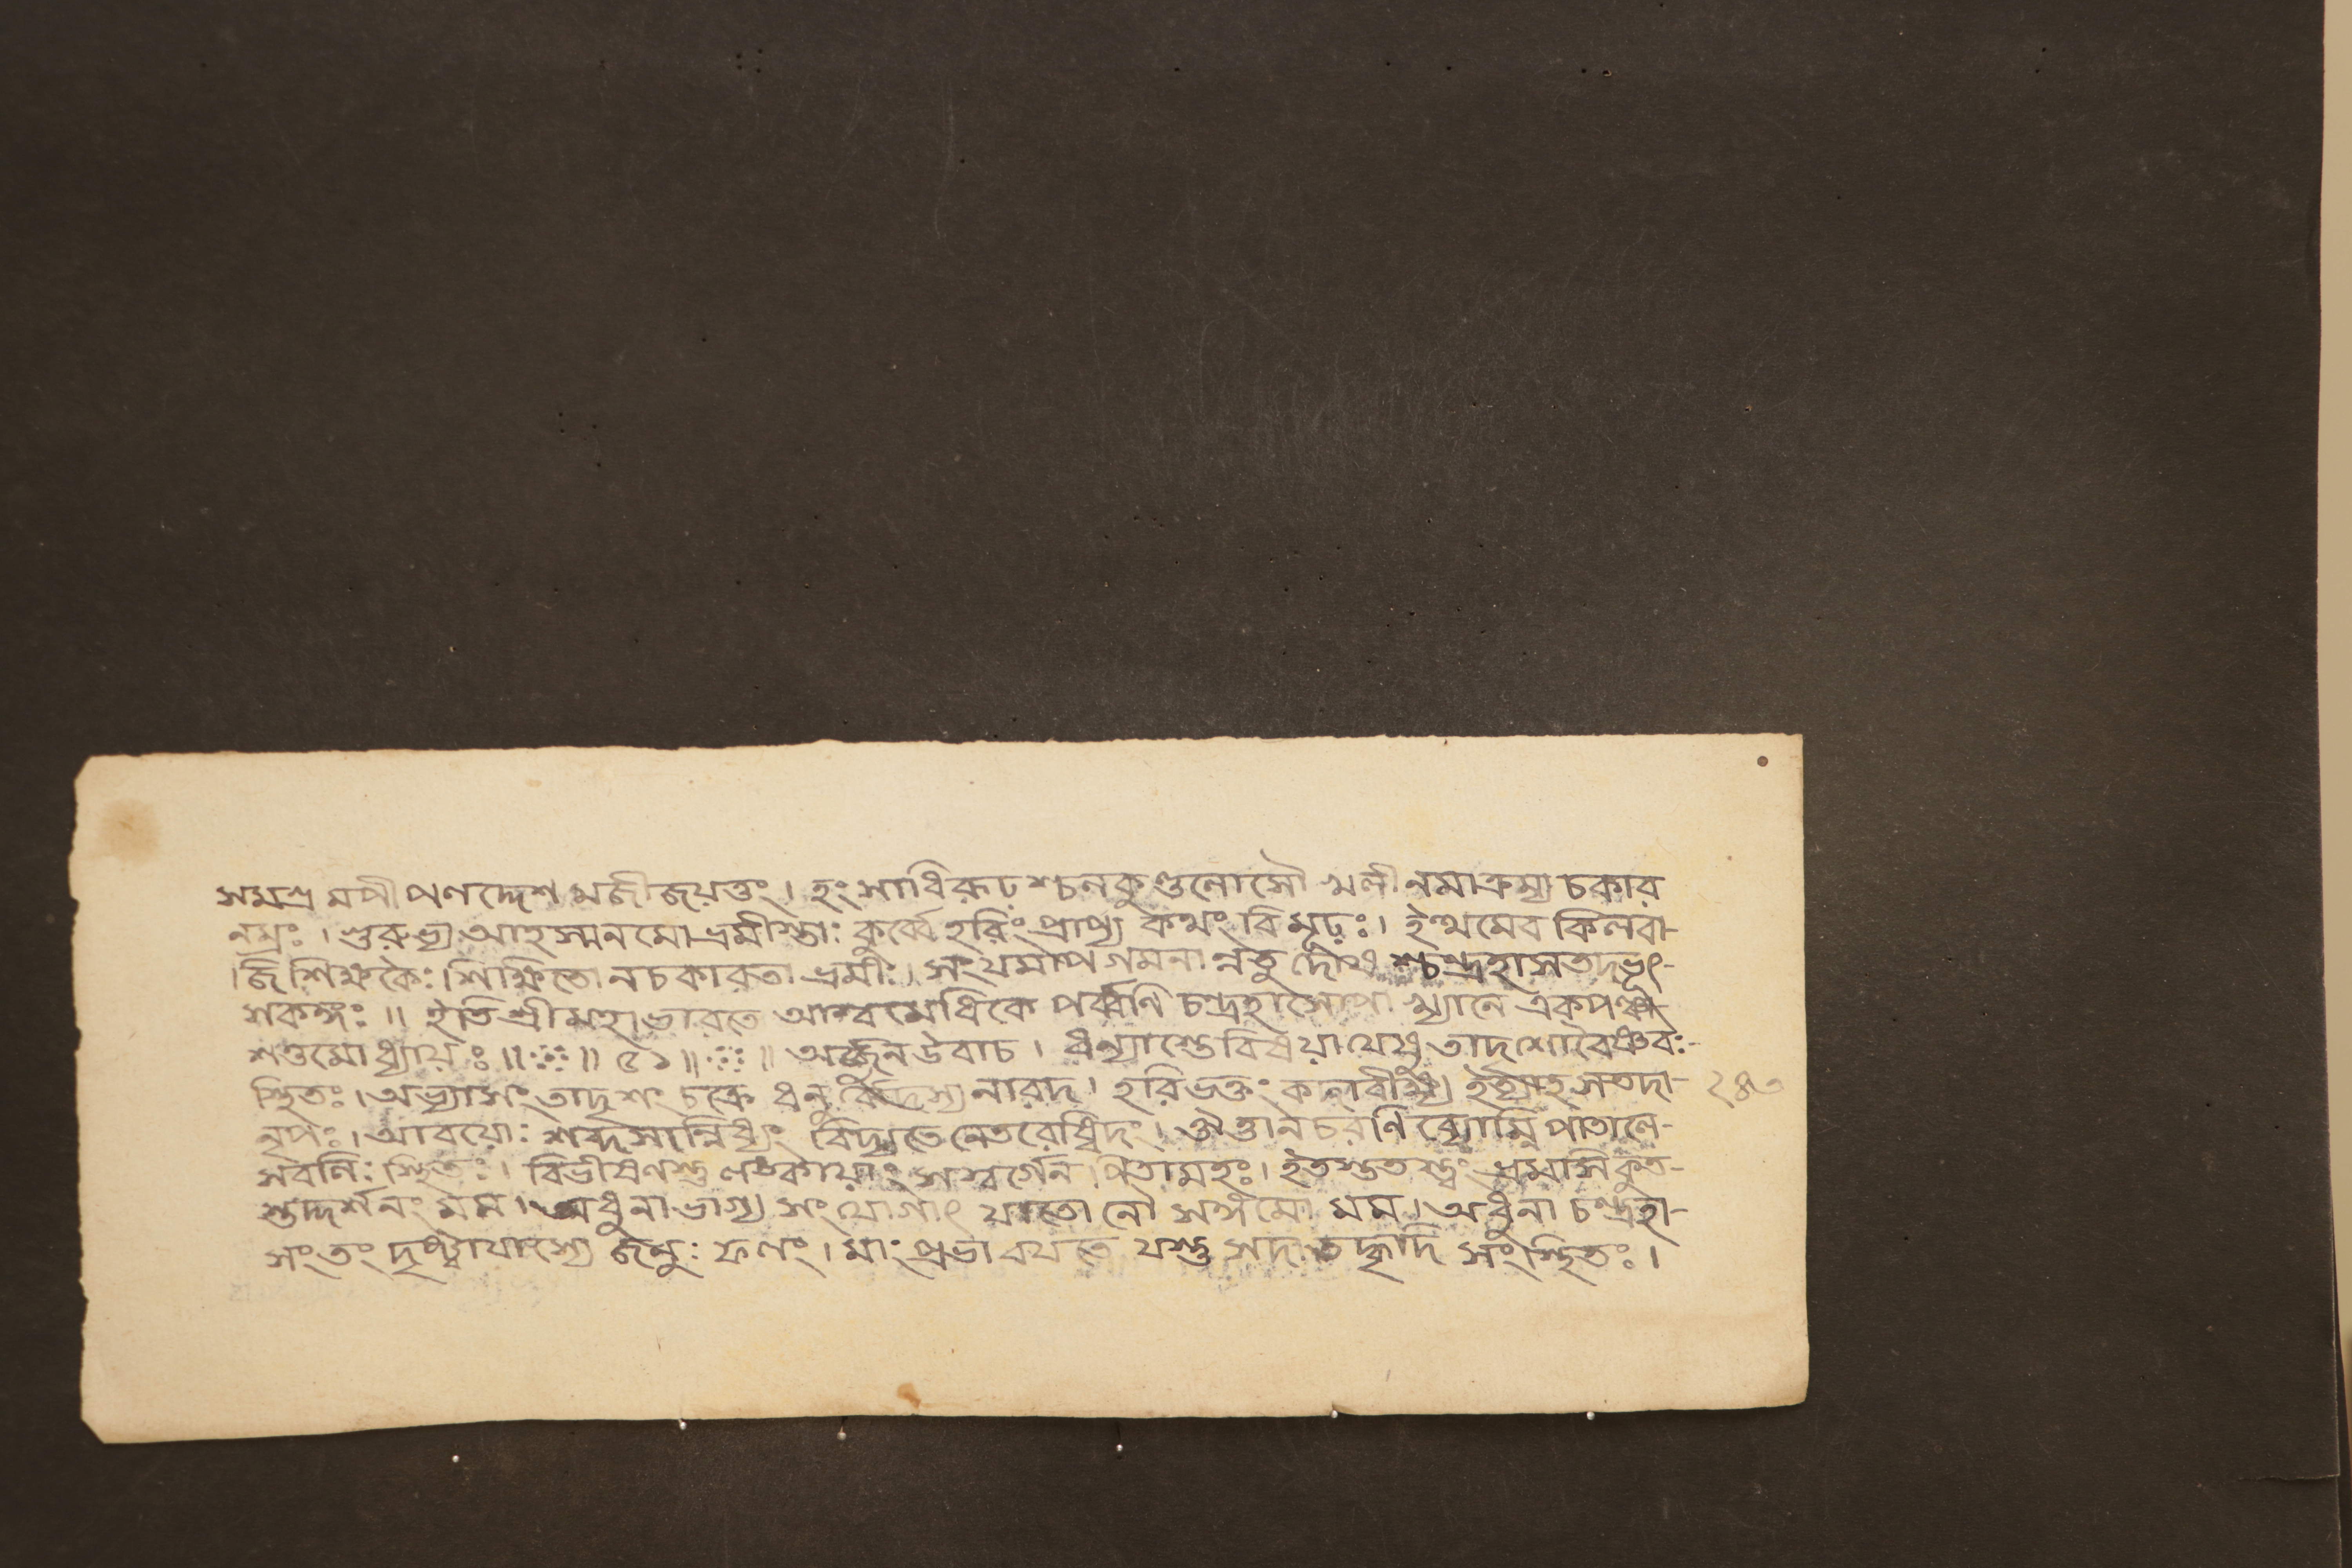 সমশ্র মপীপণদ্দেশ মজীজয়ত্তং। হংসাধিরূঢ়শ্চলকুণ্ডলোসৌ খলীনমাক্রম্য চকার
নম্রঃ। গুরুভ্য আহস্মনমোভ্রমীস্তাঃ কুর্ব্বেহরিংপ্রাপ্য কথং বিমূঢ়ঃ। ইত্থমেব কিলবা-
জিশিক্ষকৈঃ শিক্ষিতো নচকারতা ভ্রমীঃ। সংযমাপগমনা ন্নতু শ্চন্দ্রহাসতদভূৎ-
শকঙ্গঃ॥ ইতি শ্রীমহাভারতে আশ্বমেধিকে পর্ব্বণি চন্দ্রহাসোপাখ্যানে একপঞ্চা
শত্তমোধ্যায়ঃ॥ ৫১॥ অর্জ্জুনউবাচ। ধন্যাস্তেবিষয়াযেষু তাদৃশোবৈষ্ণবঃ-
স্থিতঃ। অভ্যাসং তাদৃশং চক্রে ধনুর্ব্বেদস্য নারদ। হরিভক্তং কলাবীক্ষ্য সতদা-
নৃপঃ। আবয়োঃ শব্দসান্নিধ্যং বিদ্যতে নেতরেষ্বিদং। ঔত্তানচরণি র্ব্যোম্নি পাতালে-
সবলিঃ স্থিতঃ। বিভীষণস্তু লঙ্কায়াং সস্বর্গেন পিতামহঃ। ইতস্ততস্ত্বং ভ্রমসি কুত-
স্তদ্দর্শনং মম। অধুনা ভাগ্য সংযোগাৎ যাতো নৌ সঙ্গমো মম। অধুনা চন্দ্রহা-
সংতং দৃষ্ট্বাযাস্যে জনুঃ ফলং। মাং প্রভাবযতে যস্তু সদা তদ্ধৃদি সংস্থিতঃ।
২৪৩